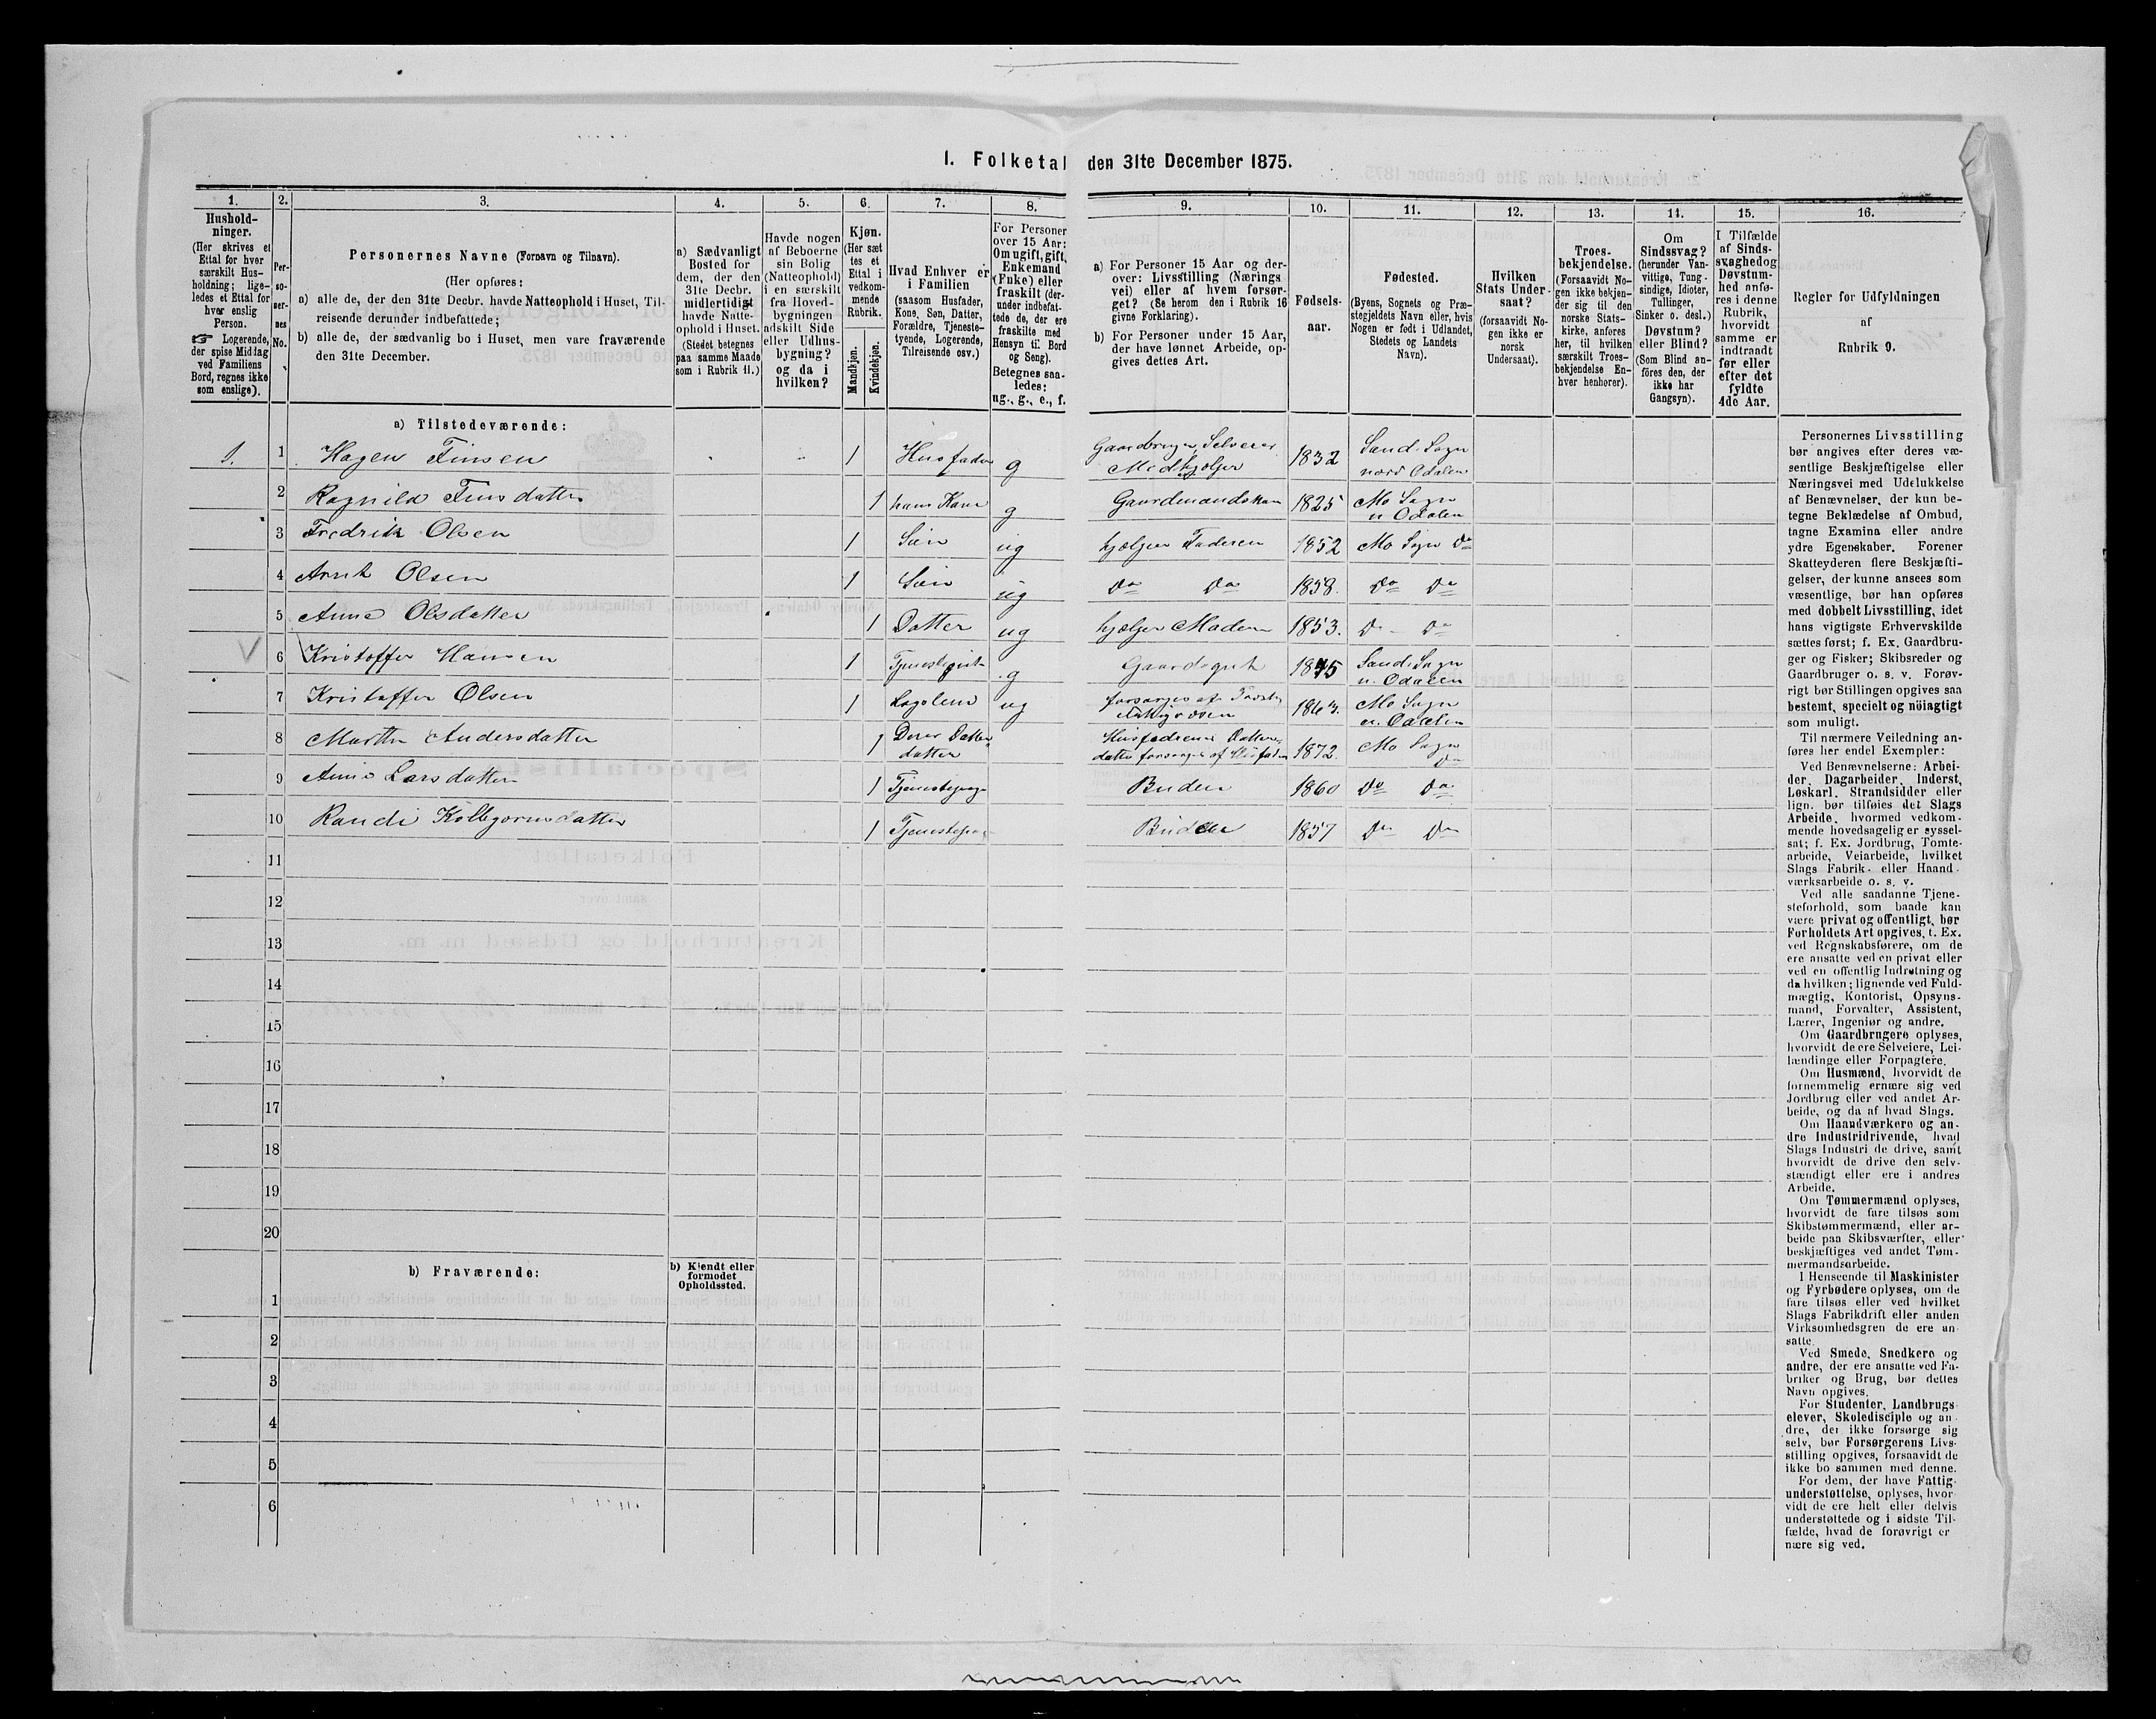 1. Folketal den 31te December 1875.
1. 2. 3. 4. 5. 6. 7. 8. 9. 10. 11. 12. 13. 14. 15. 16.
Hushold-
ninger.
(Her skrives et
Ettal for hver
særskilt Hus-
holdning; lige-
ledes et Ettal for
hver enslig
Person.
☞ Logerende,
der spise Middag
ved Familiens
Bord, regnes ikke
som enslige).
Per-
so-
ner-
nes
No.
Personernes Navne (Fornavn og Tilnavn).
(Her opføres:
a) alle de, der den 31te Decbr. havde Natteophold i Huset, Til-
reisende derunder indbefattede;
b) alle de, der sædvanlig bo i Huset, men vare fraværende
den 31te December.
a) Sædvanligt
Bosted for
dem, der den
31te Decbr.
midlertidigt
havde Natte-
ophold i Huset.
(Stedet betegnes
paa samme Maade
som i Rubrik 11.)
Havde nogen
af Beboerne
sin Bolig
(Natteophold)
i en særskilt
fra Hoved-
bygningen
adskilt Side
eller Udhus-
bygning?
og da i
hvilken?
Kjøn.
(Her sæt
tes et
Ettal i
vedkom-
mende
Rubrik.
Mandkjøn.
Kvindekjøn.
Hvad Enhver er
i Familien
(saasom Husfader,
Kone, Søn, Datter,
Forældre, Tjeneste-
tyende, Logerende,
Tilreisende osv.)
For Personer
over 15 Aar:
Om ugift, gift,
Enkemand
(Enke) eller
fraskilt (der-
under indbefat-
tede de, der ere
fraskilte med
Hensyn til Bord
og Seng).
Betegnes saa-
ledes:
ug., g., e., f.
a) For Personer 15 Aar og der-
over: Livsstilling (Nærings
vei) eller af hvem forsør-
get? (Se herom den i Rubrik 16
givne Forklaring).
b) For Personer under 15 Aar,
der have lønnet Arbeide, op-
gives dettes Art.
Fødsels-
aar.
Fødested.
(Byens, Sognets og Præ-
stegjeldets Navn eller, hvis
Nogen er født i Udlandet,
Stedets og Landets
Navn).
Hvilken
Stats Under-
saat?
(forsaavidt No-
gen ikke er
norsk
Undersaat).
Troes-
bekjendelse.
(Forsaavidt No-
gen ikke bekjen-
der sig til den
norske Stats-
kirke, anføres
her, til hvilken
særskilt Troes-
bekjendelse En-
hver henhører).
Om
Sindssvag?
(herunder Van-
vittige, Tung-
sindige, Idioter,
Tullinger,
Sinker o. desl.)
Døvstum?
eller Blind?
(Som Blind an-
føres den, der
ikke har
Gangsyn).
I Tilfælde
af Sinds-
svaghed og
Døvstum-
hed anfø-
res i denne
Rubrik,
hvorvidt
samme er
indtraadt
før eller
efter det
fyldte
4de Aar.
Regler for Udfyldningen
af
Rubrik 9.
a) Tilstedeværende:
1. 1 Hagen Finsen 1 Husfader g Gaardbruger Selveier 1832 Sand Sogn
Medhjelper nord Odalen
2 Ragnild Finsdatter 1 hans Kone g Gaardmandskone 1825 Mo Sogn
n Odalen
3 Fredrik Olsen 1 Søn ug hjelper Faderen 1852 Mo Sogn Do
4 Arnt Olsen 1 Søn ug Do Do 1858. Do Do
5 Anne Olsdatter 1 Datter ug hjelper Moderen 1853. Do Do
6 Kristoffer Hansen 1 Tjenestegut g Gaardsgut 1845 Sand Sogn
n. Odalen
7 Kristoffer Olsen 1 ug forsørges af 1863. Mo Sogn
n. Odalen
8 Marthe Andersdatter 1 Deres Datter- Husfaderens Datter- 1872. Mo Sogn
datter datter forsørges af Husfaderen Do
9 Anne Larsdatter 1 Budeie 1860 Do Do
10 Randi 1 Budeie 1857 Do Do
11
12
13
14
15
16
17
18
19
20
b) Fraværende:
b) Kjendt eller
formodet
Opholdssted.
1
2
3
4
5
6
Personernes Livsstilling
bør angives efter deres væ-
sentlige Beskjæftigelse eller
Næringsvei med Udelukkelse
af Benævnelser, der kun be-
tegne Beklædelse af Ombud,
tagne Examina eller andre
ydre Egenskaber. Forener
Skatteyderen flere Beskjæfti-
gelser, der kunne ansees som
væsentlige, bør han opføres
med dobbelt Livsstilling, idet
hans vigtigste Erhvervskilde
sættes først; f. Ex. Gaardbru-
ger og Fisker; Skibsreder og
Gaardbruger o. s. v. Forøv-
rigt bør Stillingen opgives saa
bestemt, specielt og nöiagtigt
som muligt.
Til nærmere Veiledning an-
føres her endel Exempler:
Ved Benævnelserne: Arbei-
der, Dagarbeider, Inderst,
Løskarl, Strandsidder eller
lign. bør tilføies det Slags
Arbeide, hvormed vedkom-
mende hovedsagelig er syssel-
sat; f. Ex. Jordbrug, Tomte-
arbeide, Veiarbeide, hvilket
Slags Fabrik- eller Haand-
værksarbeide o. s. v.
Ved alle saadanne Tjene-
steforhold, som baade kan
være privat og offentligt, bør
Forholdets Art opgives, t. Ex.
ved Regnskabsførere, om de
ere ansatte ved en privat eller
ved en offentlig Indretning og
da hvilken; lignende ved Fuld-
mægtig, Kontorist, Opsyns-
mand, Forvalter, Assistent,
Lærer, Ingeniør og andre.
Om Gaardbrugere oplyses,
hvorvidt de ere Selveiere, Lei-
lændinge eller Forpagtere.
Om Husmænd, hvorvidt de
fornemmelig ernære sig ved
Jordbrug eller ved andet Ar-
beide, og da af hvad Slags.
Om Haandværkere og an-
dre Industridrivende, hvad
Slags Industri de drive, samt
hvorvidt de drive den selv-
stændigt eller ere i andres
Arbeide.
Om Tømmermænd oplyses,
hvorvidt de fare tilsøs som
Skibstømmermænd, eller ar-
beide paa Skibsværfter, eller
beskjæftiges ved andet Tøm-
mermandsarbeide.
I Henseende til Maskinister
og Fyrbødere oplyses, om de
fare tilsøs eller ved hvilket
Slags Fabrikdrift eller anden
Virksomhedsgren de ere an-
satte.
Ved Smede, Snedkere og
andre, der ere ansatte ved Fa-
briker og Brug, bør dettes
Navn opgives.
For Studenter, Landbrugs-
elever, Skoledisciple og an-
dre, der ikke forsørge sig
selv, bør Forsørgerens Livs-
stilling opgives, forsaavidt de
ikke bo sammen med denne.
For dem, der have Fattig-
understøttelse, oplyses, hvor-
vidt de ere helt eller delvis
understøttede og i sidste Til-
fælde, hvad de forøvrigt er
nære sig ved.